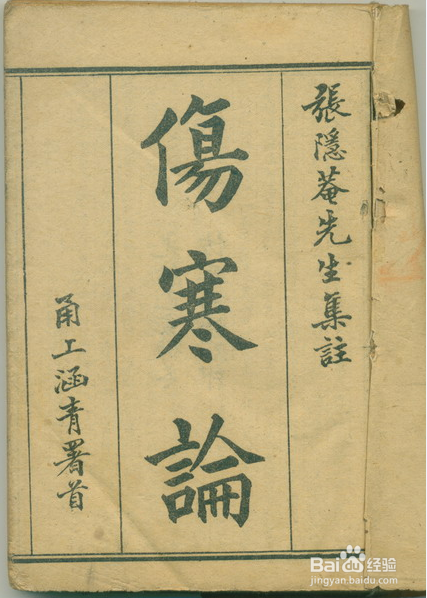 張隱菴先生集註
傷寒論
甬上涵青署首
Bai 经验
jingyan.baidu.com